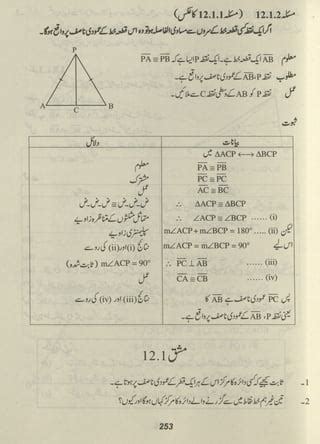 مسئلہ 12.1.2 (مسئلہ 12.1.1 کا عکس)
اگر ایک نقطہ کسی قطعہ خط کے سروں سے مساوی الفاصلہ ہو تو وہ اس قطعہ خط کے عمودی ناصف پر واقع ہو گا۔
P
A C B
معلوم AB ایک قطعہ خط ہے۔ ایک نقطہ P ایسا ہے کہ PA ≅ PB
مطلوب نقطہ P، AB کے عمودی ناصف پر واقع ہے۔
عمل نقطہ P کو AB کے وسطی نقطہ C سے ملائیں۔
ثبوت
بیانات دلائل
ΔACP ⟷ ΔBCP میں
PA ≅ PB معلوم
PC ≅ PC مشترک
AC ≅ BC عمل
∴ ΔACP ≅ ΔBCP ض۔ض۔ض ≅ ض۔ض۔ض
∴ ∠ACP ≅ ∠BCP ...... (i) متماثل مثلثوں کے متناظرہ زاویے
لیکن m∠ACP + m∠BCP = 180° ..... (ii) سپلیمنٹری زاویے
اس لیے m∠ACP = m∠BCP = 90° نتائج (i) اور (ii) کی رو سے
∴ PC ⊥ AB ...... (iii) m∠ACP = 90° (ثابت شدہ)
CA ≅ CB ...... (iv) عمل
پس PC عمودی ناصف ہے AB کا نتائج (iii) اور (iv) کی رو سے
یعنی نقطہ P، AB کے عمودی ناصف پر واقع ہے۔
مشق 12.1
1۔ ثابت کیجیے کہ کسی دائرہ کا مرکز اس کے ہر ایک قطر کے عمودی ناصف پر ہوتا ہے۔
2۔ تین غیر ہم خط نقاط میں سے گزرنے والے دائرہ کا مرکز کہاں ہو گا اور کیوں؟
253